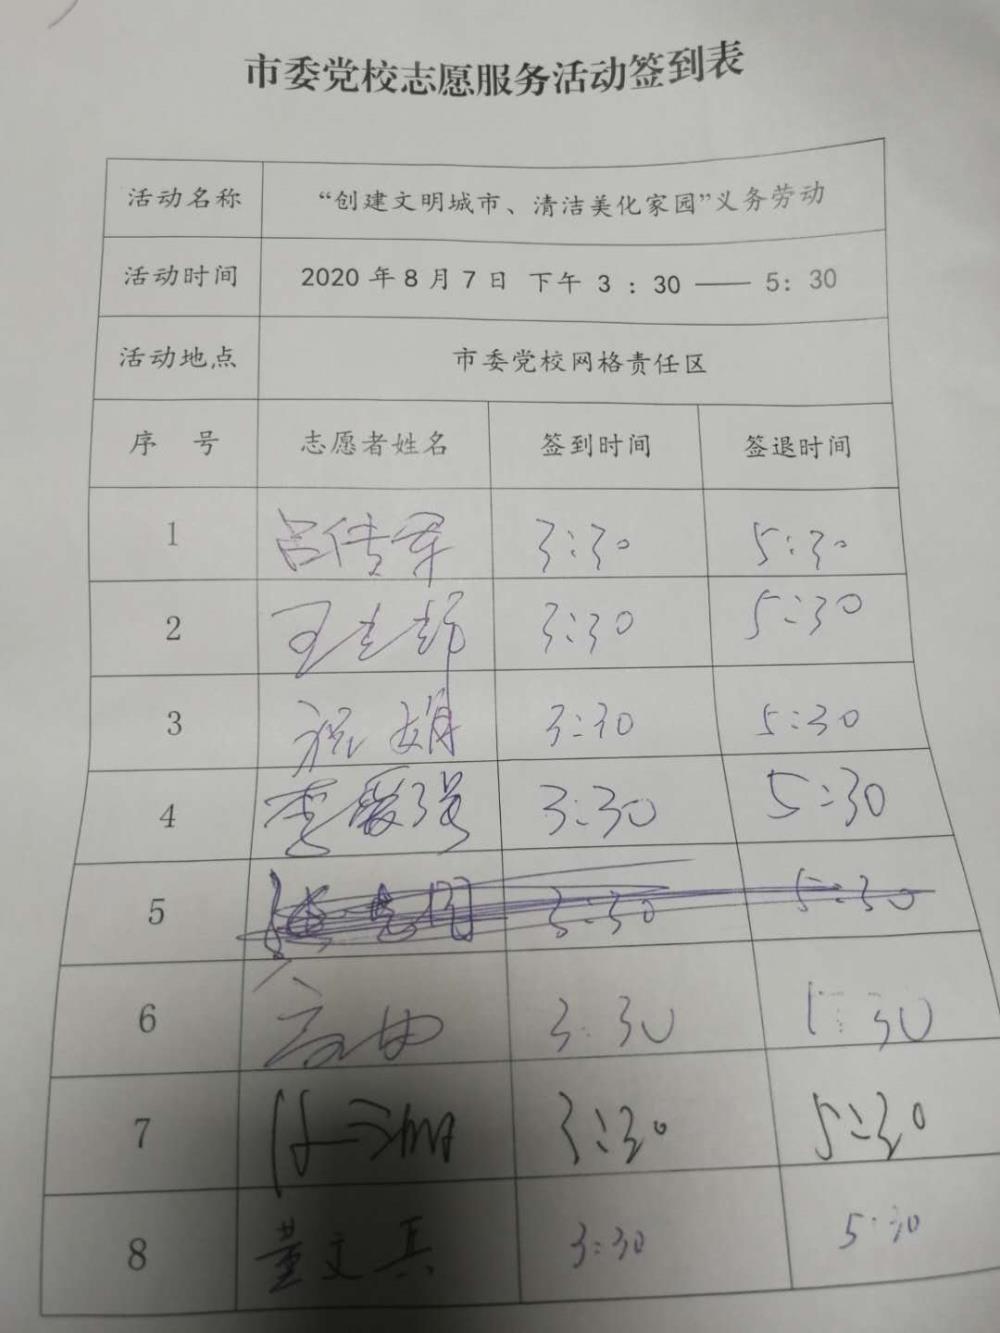 市委党校志愿服务活动签到表
活动名称 “创建文明城市、清洁美化家园”义务劳动
活动时间 2020年8月7日 下午 3：30 —— 5：30
活动地点 市委党校网格责任区
序 号 志愿者姓名 签到时间 签退时间
1 吕传军 3:30 5:30
2 3:30 5:30
3 祝娟 3:30 5:30
4 李爱强 3:30 5:30
5 3:30 5:30
6 3:30 5:30
7 3:30 5:30
8 董文兵 3:30 5:30